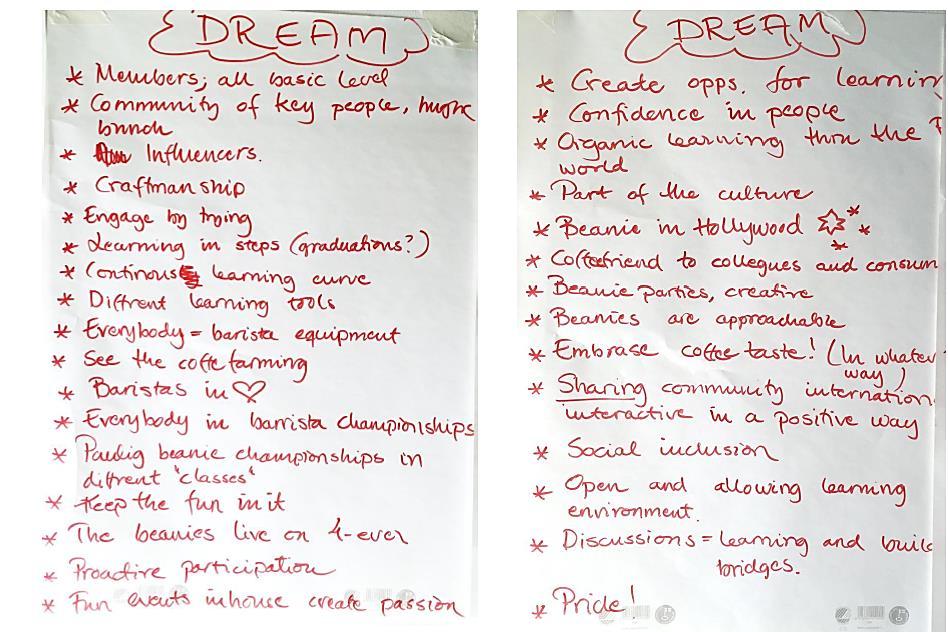 DREAM
* Members; all basic level
* Community of key people,
bunch
* Influencers.
* Craftmanship
* Engage by trying
* Learning in steps (graduations?)
* Continous learning curve
* Diffrent learning tools
* Everybody = barista equipment
* See the coffe farming
* Baristas in ♡
* Everybody in barrista championships
* Paulig beanie championships in
diffrent "classes"
* Keep the fun in it
* The beanies live on 4-ever
* Proactive participation
* Fun events inhouse create passion
DREAM
* Create opps. for learnin
* Confidence in people
* Organic learning thru the
world
* Part of the culture
* Beanie in Hollywood
* Coffeefriend to collegues and consum
* Beanie parties, creative
* Beanies are approachable
* Embrase coffee taste! (In whatev
way)
* Sharing community internation
interactive in a positive way
* Social inclusion
* Open and allowing learning
environment.
* Discussions = learning and build
bridges.
* Pride!